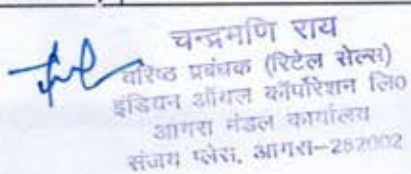 चन्द्रमणि राय
वरिष्ठ प्रबंधक (रिटेल सेल्स)
इंडियन ऑयल कॉर्पोरेशन लि०
आगरा मंडल कार्यालय
संजय प्लेस, आगरा-282002